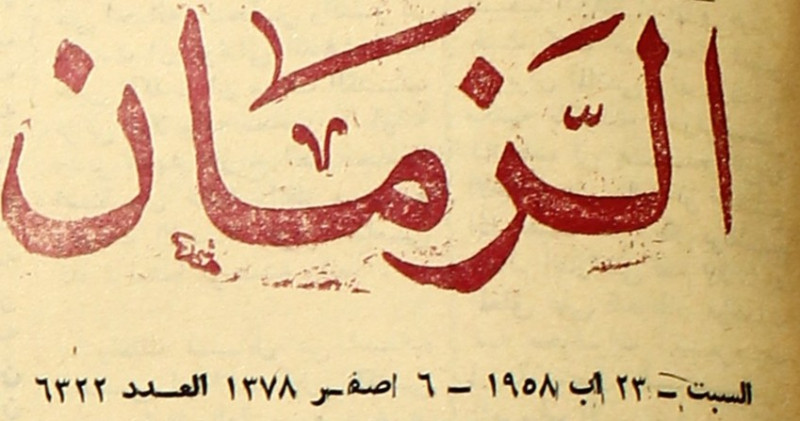 الزَّمان
السبت – ٢٣ اب ١٩٥٨ – ٦ اصفر ١٣٧٨ العدد ٦٣٢٢